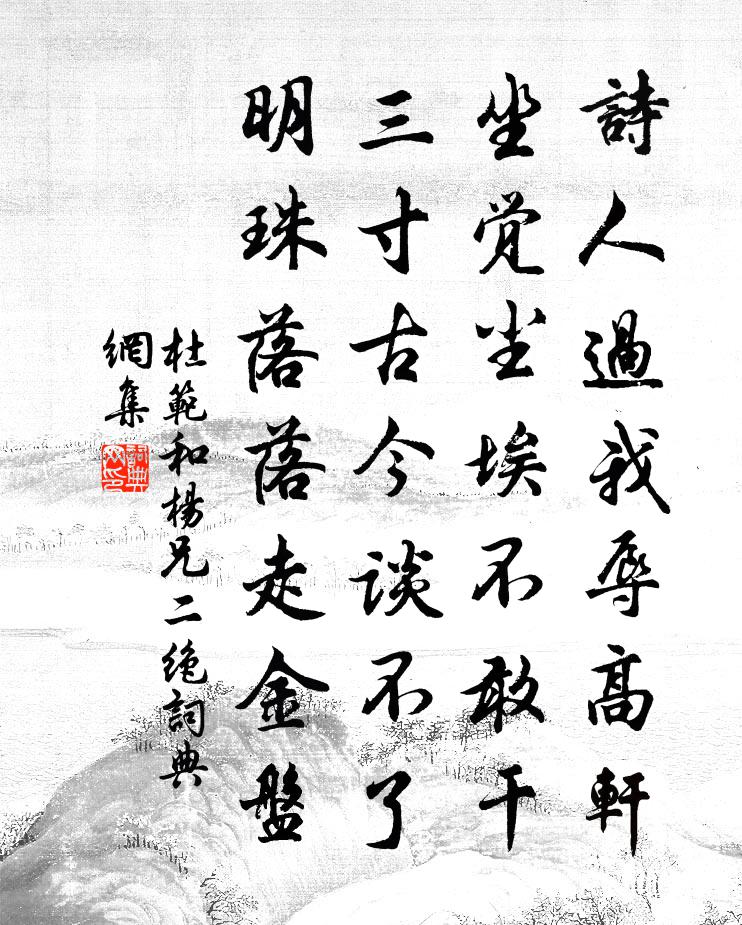 詩人過我辱高軒
坐覺尘埃不敢干
三寸古今談不了
明珠落落走金盤
杜範和楊兄二絶詞典
網集
詞典网印